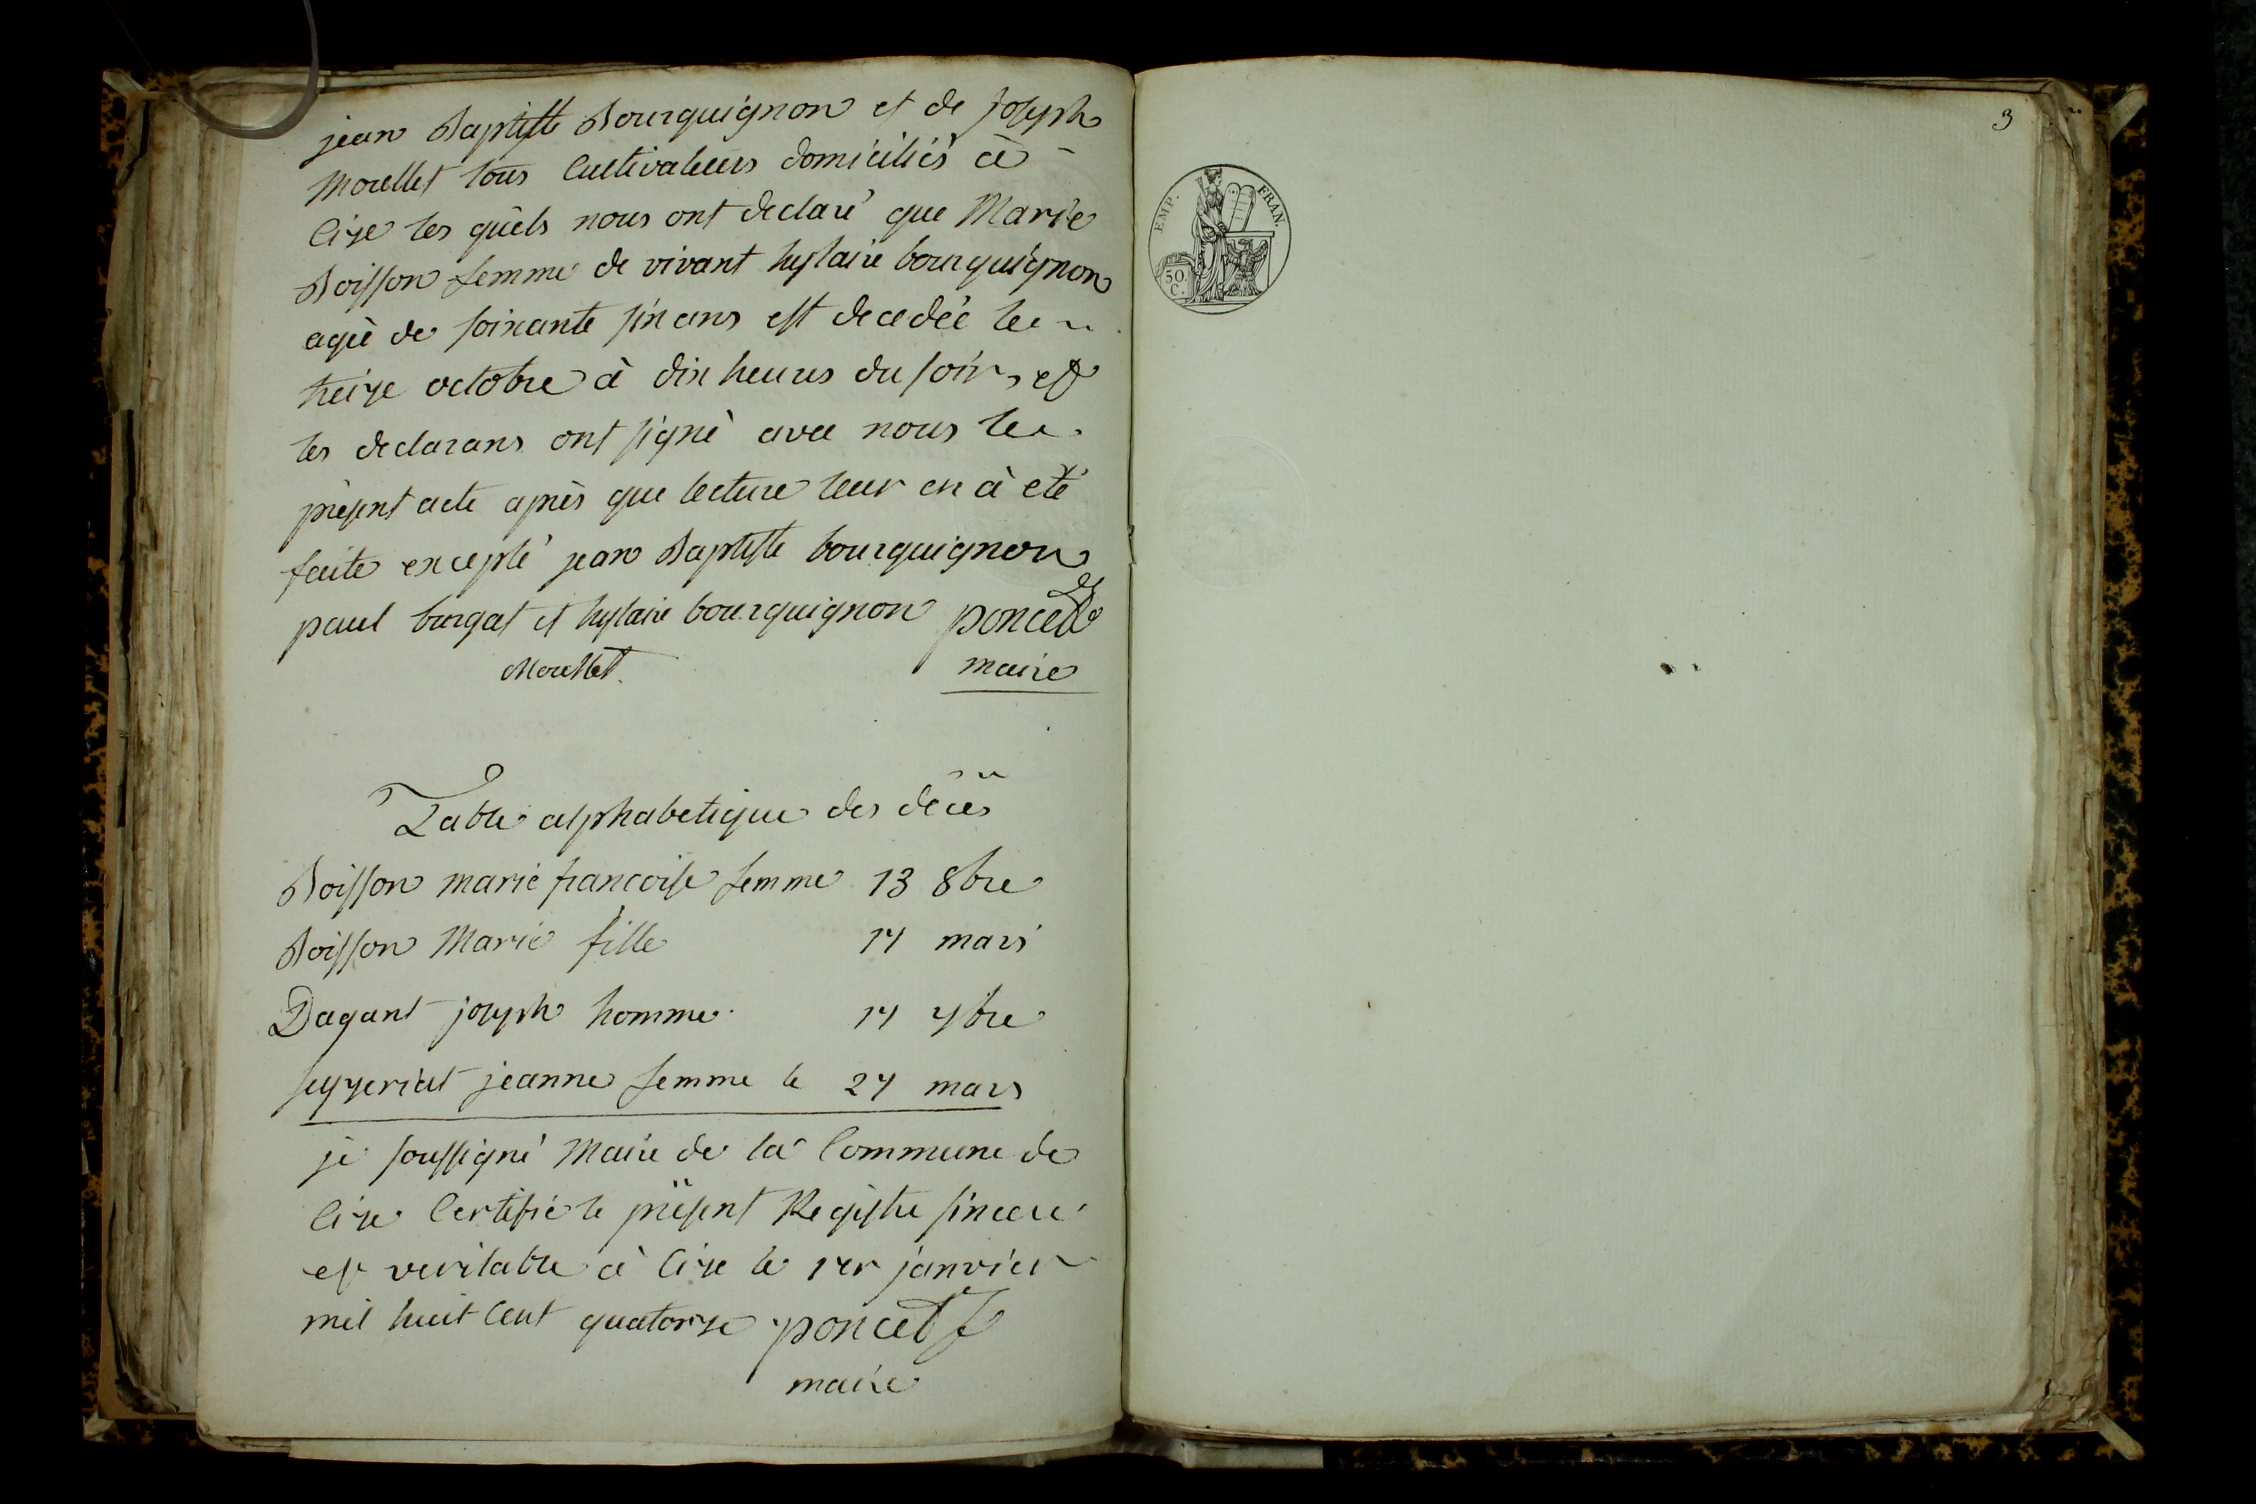 jean Baptiste Bourguignon et de joseph
Morellet tous Cultivateurs domiciliés à
Cize les quels nous ont declaré que Marie
Boisson femme de vivant hylaire bourguignon
agée de soixante six ans est decedée le
treize octobre à dix heures du soir, et
les declarans ont signé avec nous le
présent acte après que lecture leur en à eté
faite excepté jean Baptiste bourguignon
paul burgat et hylaire bourguignon poncet
Morellet maire
Table alphabetique des décès
Boisson marie francoise femme 13 8bre
Boisson Marie fille 14 mars
Dagant joseph homme 14 7bre
seyzeriat jeanne femme le 24 mars
je soussigné Maire de la Commune de
Cize Certifie le présent Registre sincere
et veritable à Cize le 1er janvier
mil huit Cent quatorze poncet
maire
3
EMP. FRAN.
50
C.